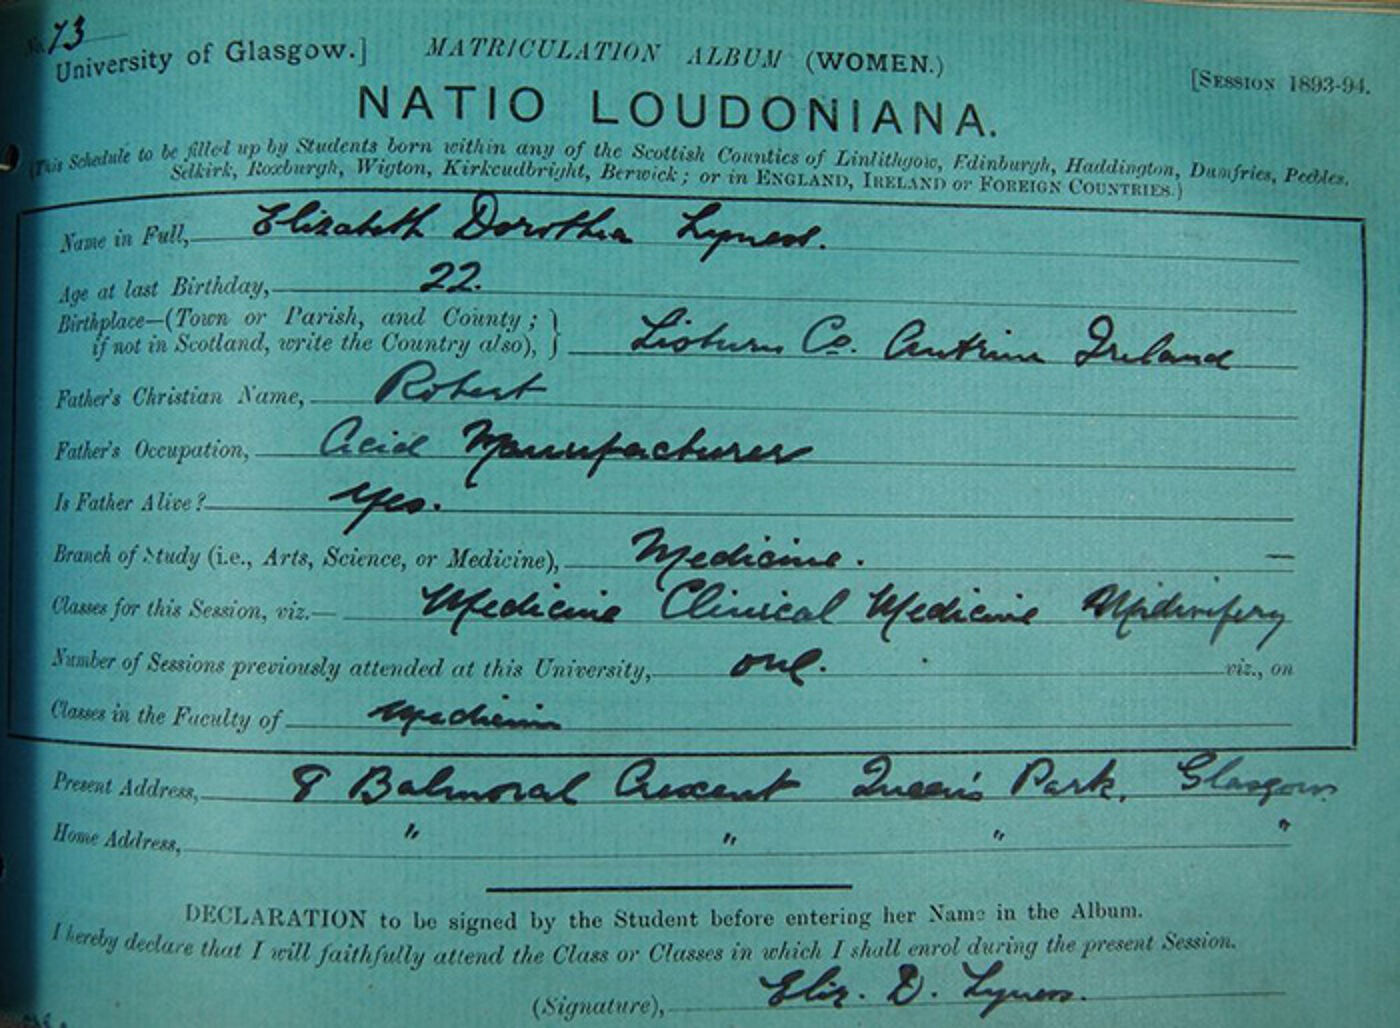 No. 73
University of Glasgow.] MATRICULATION ALBUM (WOMEN.) [SESSION 1893-94.
NATIO LOUDONIANA.
(This Schedule to be filled up by Students born within any of the Scottish Counties of Linlithgow, Edinburgh, Haddington, Dumfries, Peebles,
Selkirk, Roxburgh, Wigton, Kirkcudbright, Berwick; or in ENGLAND, IRELAND or FOREIGN COUNTRIES.)
Name in Full, Elizabeth Dorothea Lyness.
Age at last Birthday, 22.
Birthplace—(Town or Parish, and County;
if not in Scotland, write the Country also), } Lisburn Co. Antrim Ireland
Father's Christian Name, Robert
Father's Occupation, Acid Manufacturer
Is Father Alive? Yes.
Branch of Study (i.e., Arts, Science, or Medicine), Medicine. —
Classes for this Session, viz.— Medicine Clinical Medicine Midwifery
Number of Sessions previously attended at this University, one. viz., on
Classes in the Faculty of Medicine
Present Address, 8 Balmoral Crescent Queen's Park, Glasgow.
Home Address, " " " "
DECLARATION to be signed by the Student before entering her Name in the Album.
I hereby declare that I will faithfully attend the Class or Classes in which I shall enrol during the present Session.
(Signature), Eliz. D. Lyness.